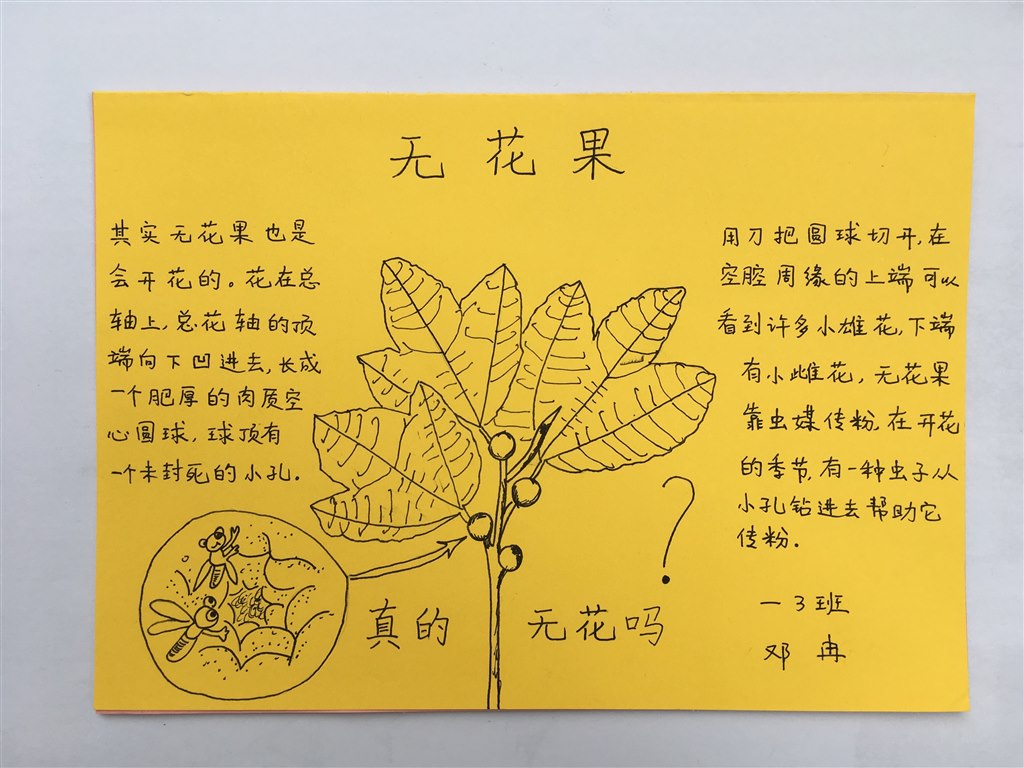 无花果
其实无花果也是
会开花的。花在总
轴上,总花轴的顶
端向下凹进去,长成
一个肥厚的肉质空
心圆球,球顶有
一个未封死的小孔.
用刀把圆球切开,在
空腔周缘的上端可以
看到许多小雄花,下端
有小雌花,无花果
靠虫媒传粉,在开花
的季节,有一种虫子从
小孔钻进去帮助它
传粉.
真的 无花吗?
一3班
邓冉